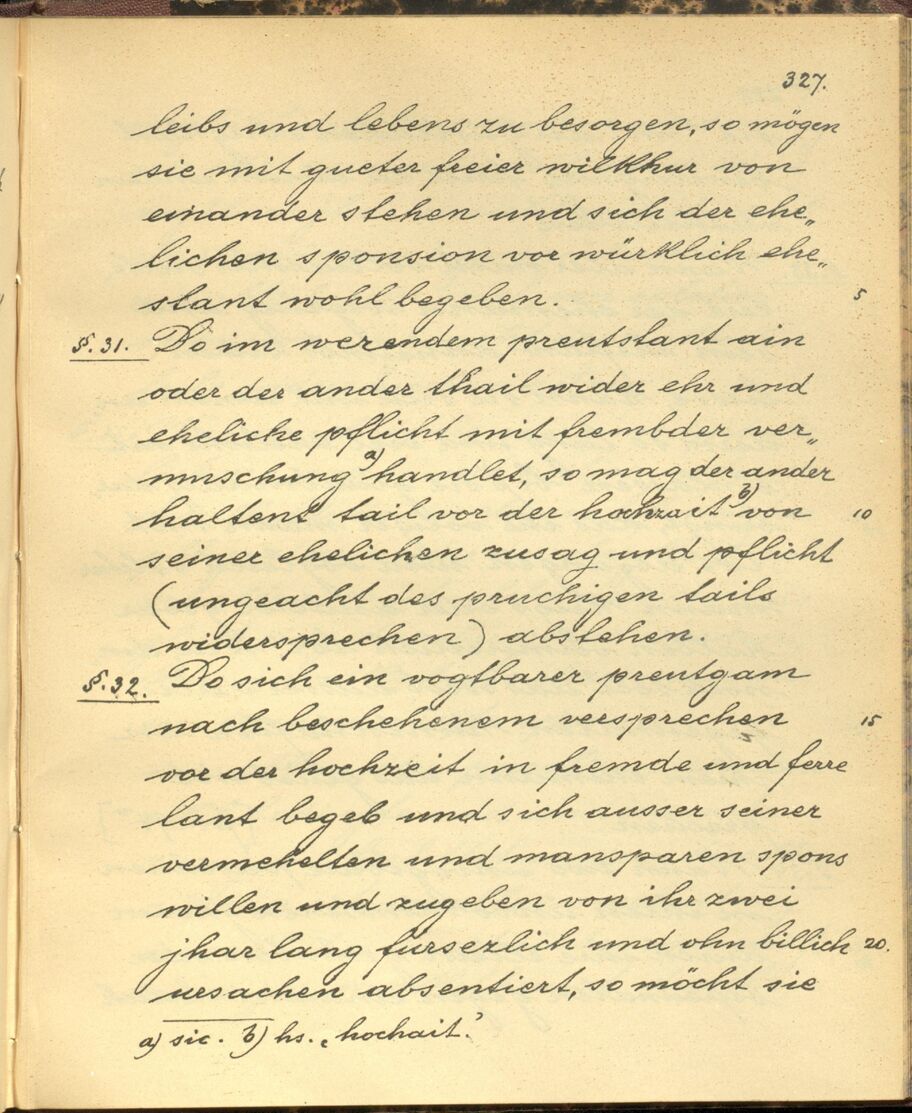 327.
leibs und lebens zu besorgen, so mögen
sie mit gueter freier wilkhur von
einander stehen und sich der ehe„
lichen sponsion vor würklich ehe„
stant wohl begeben. 5
§. 31. Do im werendem preutstant ain
oder der ander thail wider ehr und
eheliche pflicht mit frembder ver„
muschung a) handlet, so mag der ander
haltent tail vor der hochzait b) von 10
seiner ehelichen zusag und pflicht
(ungeacht des pruchigen tails
widersprechen) abstehen.
§. 32. Do sich ein vogtbarer preutgam
nach beschehenem versprechen 15
vor der hochzeit in fremde und ferre
lant begeb und sich ausser seiner
vermehelten und mansparen spons
willen und zugeben von ihr zwei
jhar lang fürsezlich und ohn billich 20.
ursachen absentiert, so möcht sie
a) sic. b) hs. ‚hochait.’